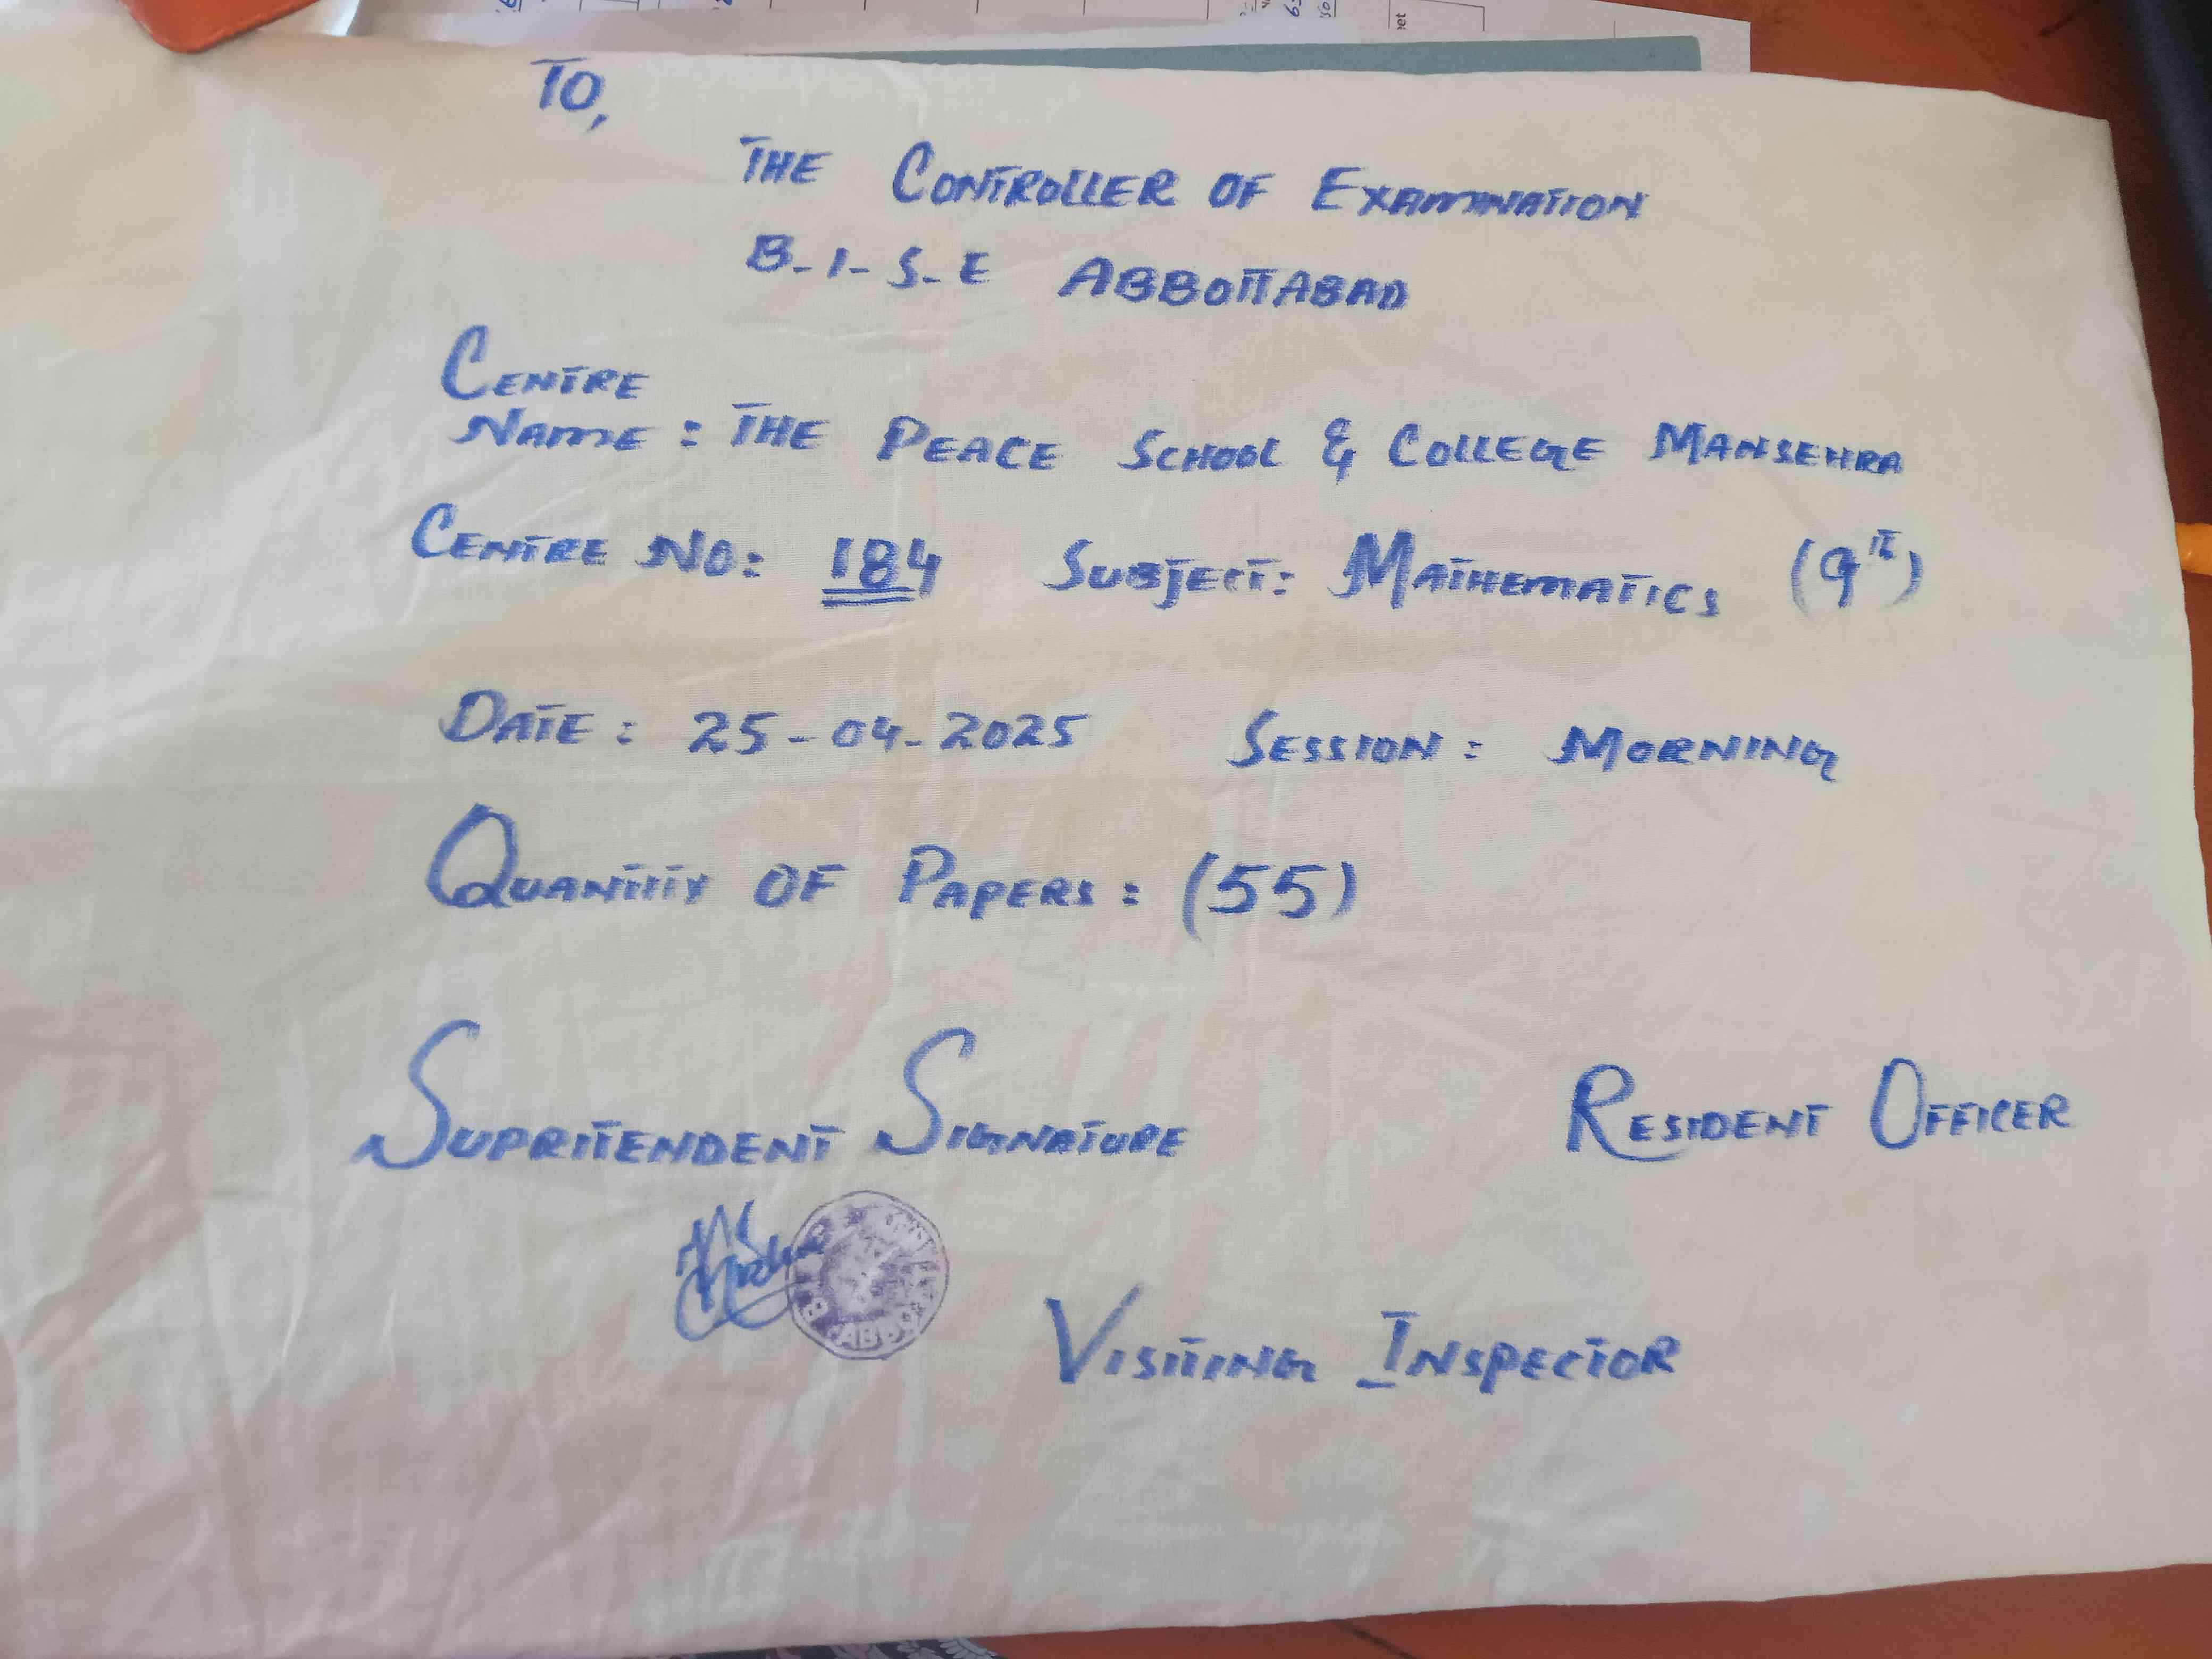 TO,
THE CONTROLLER OF EXAMINATION
B-I-S-E ABBOTTABAD
CENTRE
NAME : THE PEACE SCHOOL & COLLEGE MANSEHRA
CENTRE NO: 184 SUBJECT: MATHEMATICS (9th)
DATE : 25-04-2025 SESSION : MORNING
QUANTITY OF PAPERS : (55)
SUPRITENDENT SIGNATURE RESIDENT OFFICER
VISITING INSPECTOR